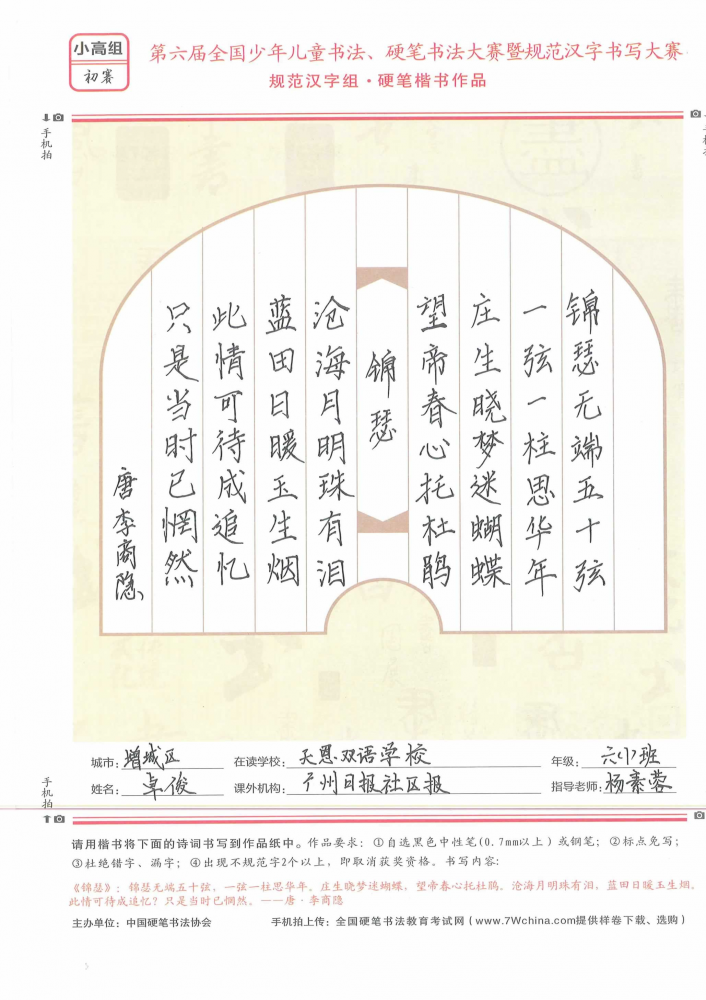 小高组
初赛
第六届全国少年儿童书法、硬笔书法大赛暨规范汉字书写大赛
规范汉字组·硬笔楷书作品
手机拍
锦瑟无端五十弦
一弦一柱思华年
庄生晓梦迷蝴蝶
望帝春心托杜鹃
锦瑟
沧海月明珠有泪
蓝田日暖玉生烟
此情可待成追忆
只是当时已惘然
唐李商隐
城市:增城区 在读学校:天恩双语学校 年级:六(1)班
姓名:卓俊 课外机构:广州日报社区报 指导老师:杨素蓉
手机拍
请用楷书将下面的诗词书写到作品纸中。作品要求:①自选黑色中性笔(0.7mm以上)或钢笔;②标点免写;
③杜绝错字、漏字;④出现不规范字2个以上,即取消获奖资格。书写内容:
《锦瑟》:锦瑟无端五十弦,一弦一柱思华年。庄生晓梦迷蝴蝶,望帝春心托杜鹃。沧海月明珠有泪,蓝田日暖玉生烟。
此情可待成追忆?只是当时已惘然。——唐·李商隐
主办单位:中国硬笔书法协会 手机拍上传:全国硬笔书法教育考试网(www.7Wchina.com提供样卷下载、选购)